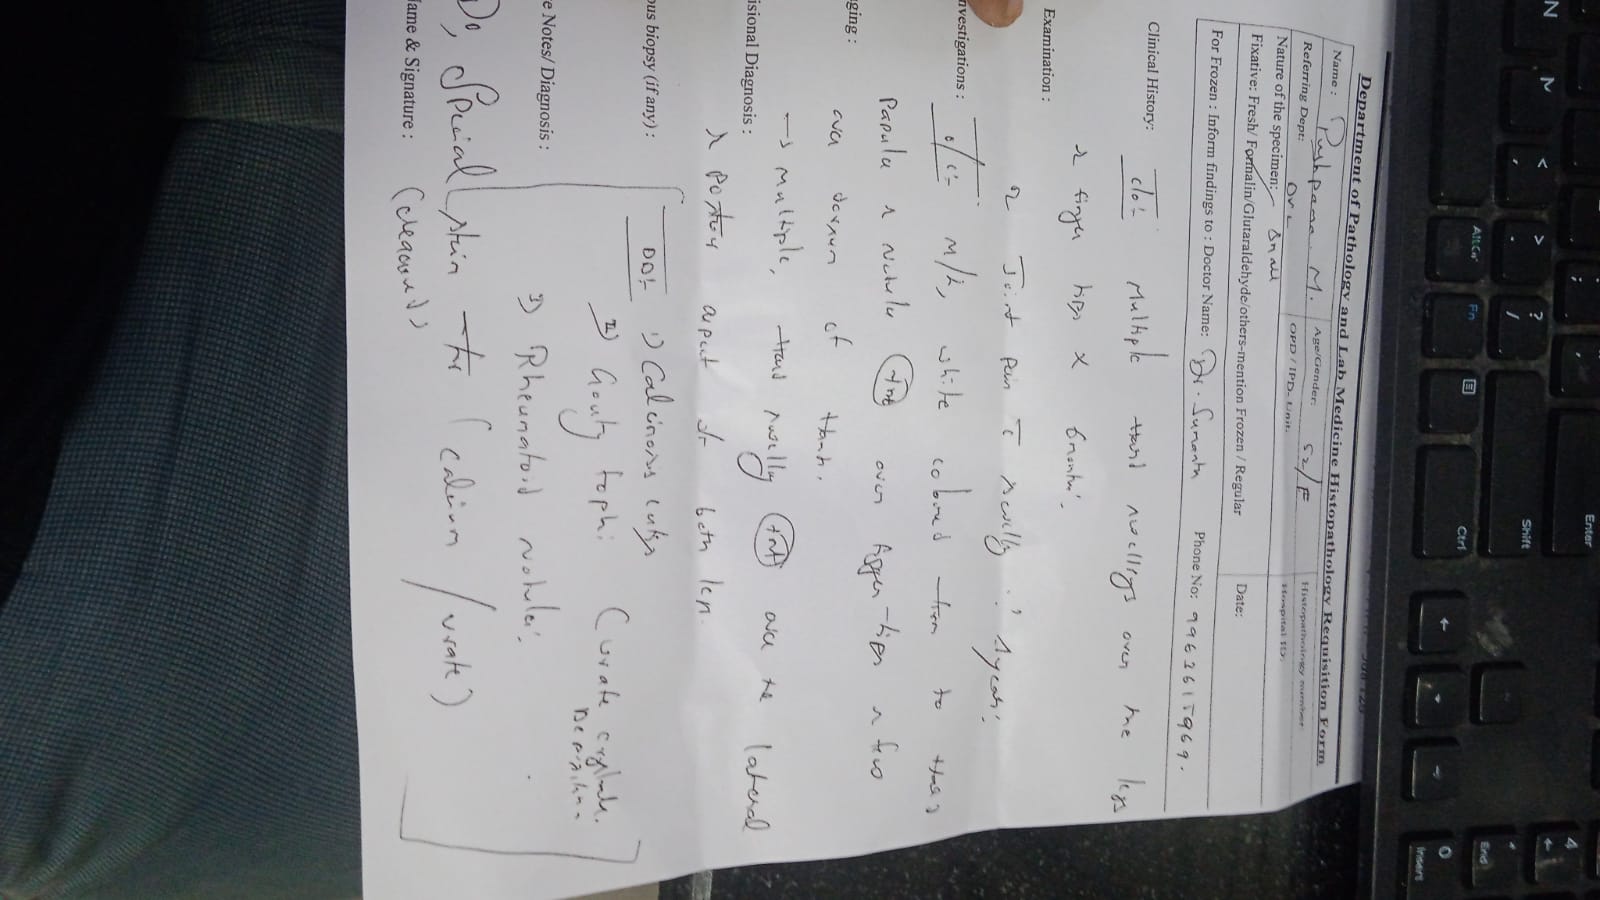 Department of Pathology and Lab Medicine Histopathology Requisition Form
Name : Pushpama. M. Age/Gender: 52/F Histopathology number
Referring Dept: DVL OPD / IPD- Unit: Hospital ID:
Nature of the specimen: Small
Fixative: Fresh/ Formalin/Glutaraldehyde/others-mention Frozen / Regular Date:
For Frozen : Inform findings to : Doctor Name: Dr. Sumanth Phone No: 9963615969.
Clinical History: c/o:- Multiple hard swellings over the legs
& finger tips x 6 months.
Examination :
& Joint pain c swelling : 1 year.
nvestigations : o/e:- M/L, white coloured firm to hard
Papule & nodule +nt over finger tips & few
ging : over dorsum of hands.
→ multiple, hard swelling +nt over the lateral
isional Diagnosis : & posterior aspect of both legs.
ous biopsy (if any) : DD:- 1) Calcinosis cutis
II) Gouty tophi (urate crystals. Deposition
e Notes/ Diagnosis : 3) Rheumatoid nodules.
Do, Special stain for (calcium / urate)
ame & Signature :
AltGr
Fn
Ctrl
Shift
Enter
End
Insert
N
4
0
?
/
>
.
<
,
;
: